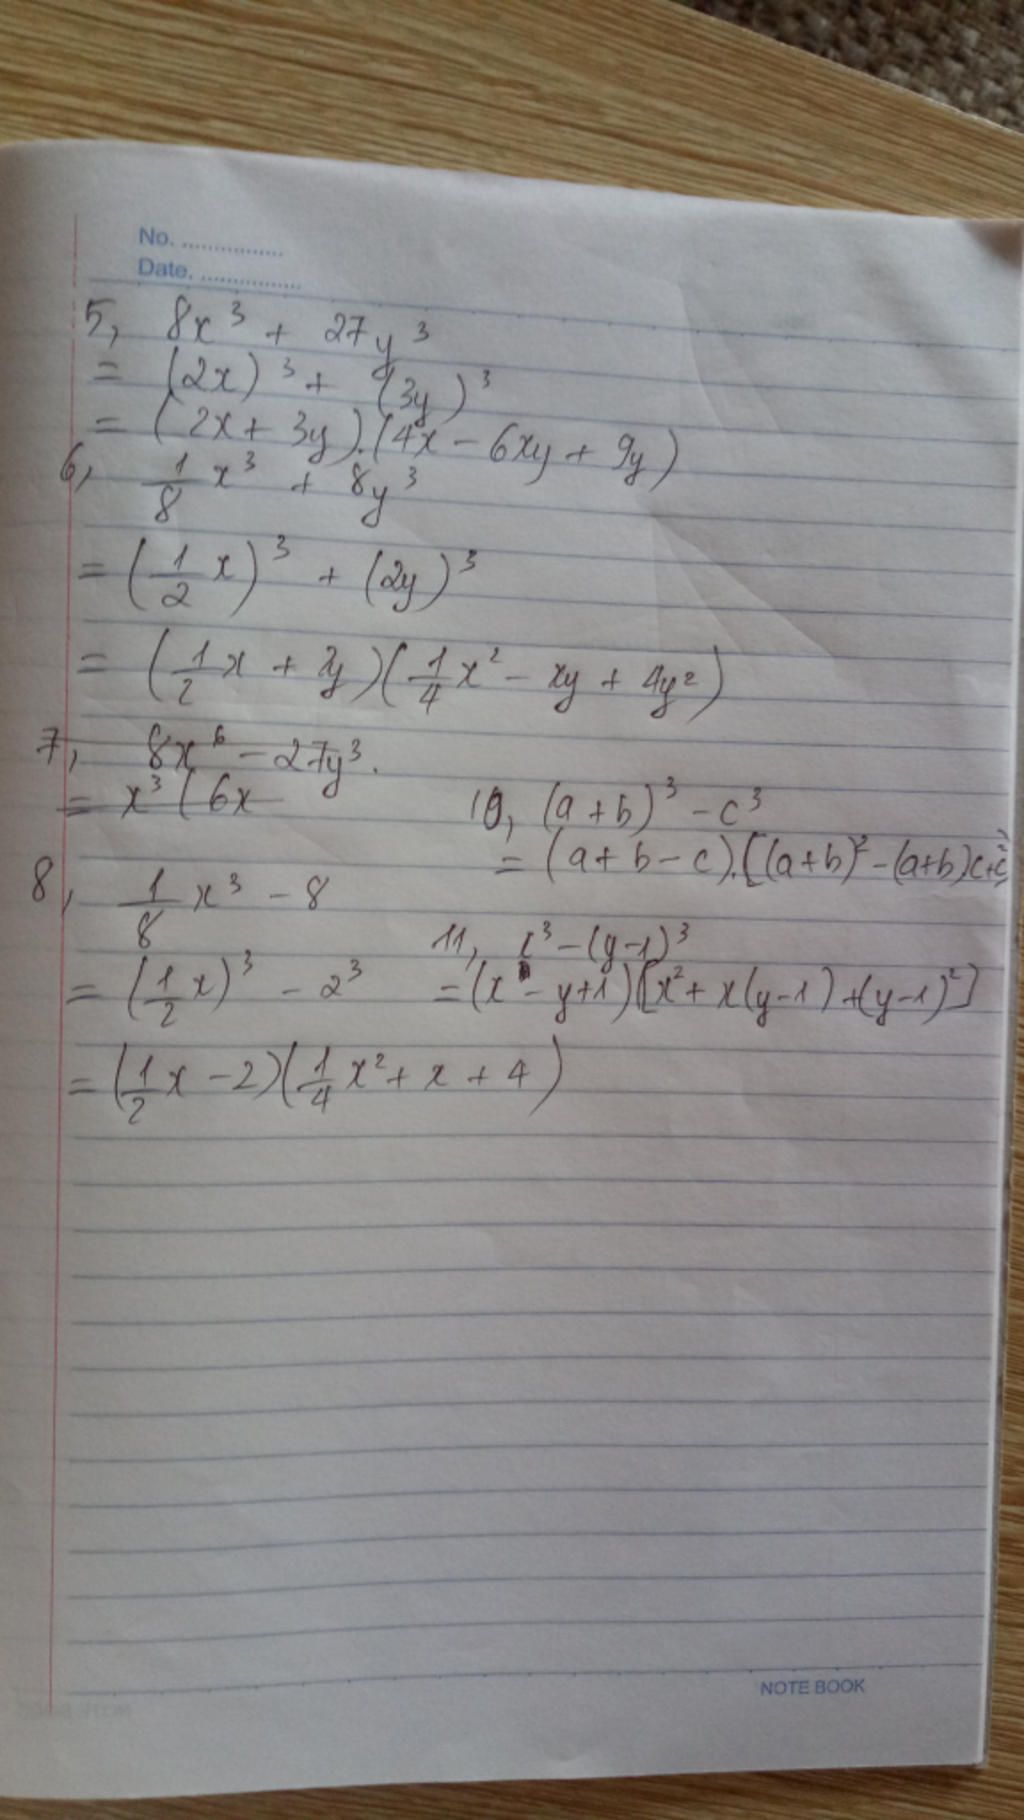 No. ................
Date. ................
5, 8x³ + 27y³
= (2x)³ + (3y)³
= (2x + 3y).(4x - 6xy + 9y)
6, 1/8 x³ + 8y³
= (1/2 x)³ + (2y)³
= (1/2 x + 2y)(1/4 x² - xy + 4y²)
7, 8x⁶ - 27y³.
= x³ (6x
8, 1/8 x³ - 8
= (1/2 x)³ - 2³
= (1/2 x - 2)(1/4 x² + x + 4)
10, (a + b)³ - c³
= (a + b - c).[(a+b)² - (a+b)c+c²]
11, x³ - (y-1)³
= (x - y+1)[x² + x(y-1) + (y-1)²]
NOTE BOOK